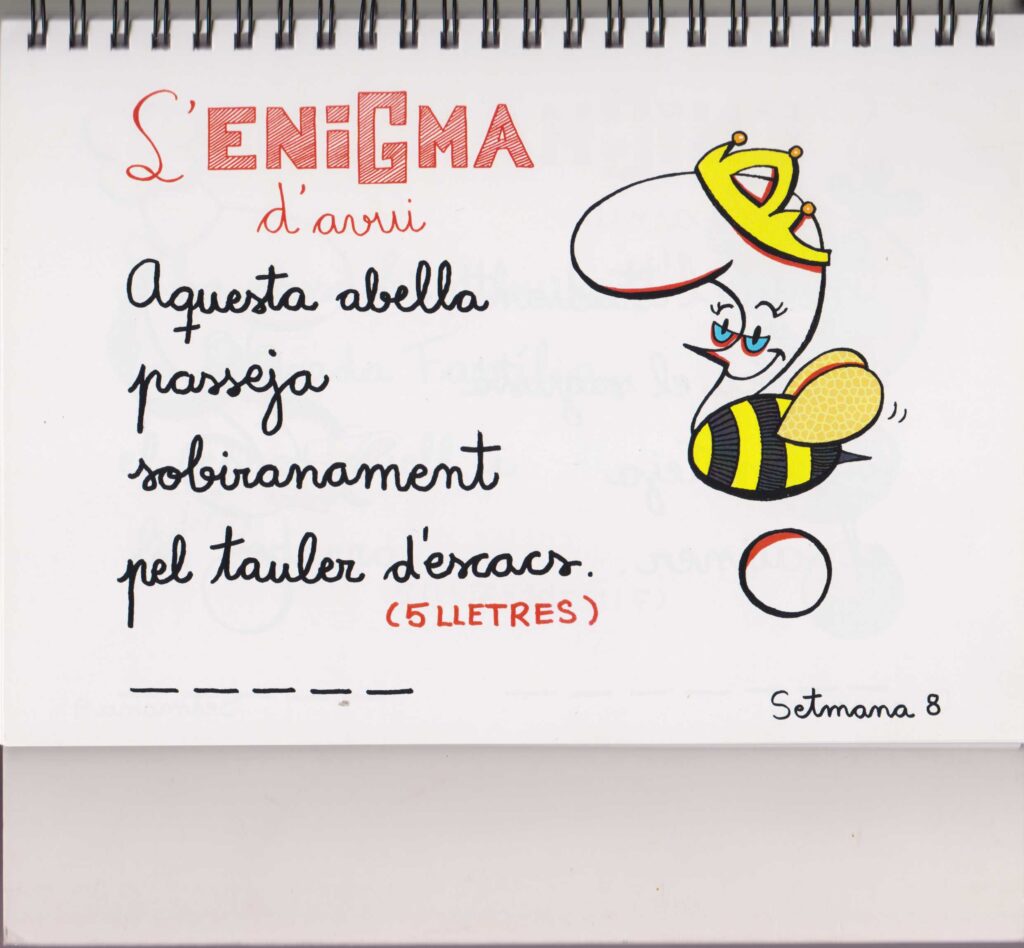 L'ENIGMA
d'avui
Aquesta abella
passeja
sobiranament
pel tauler d'escacs.
(5 LLETRES)
Setmana 8